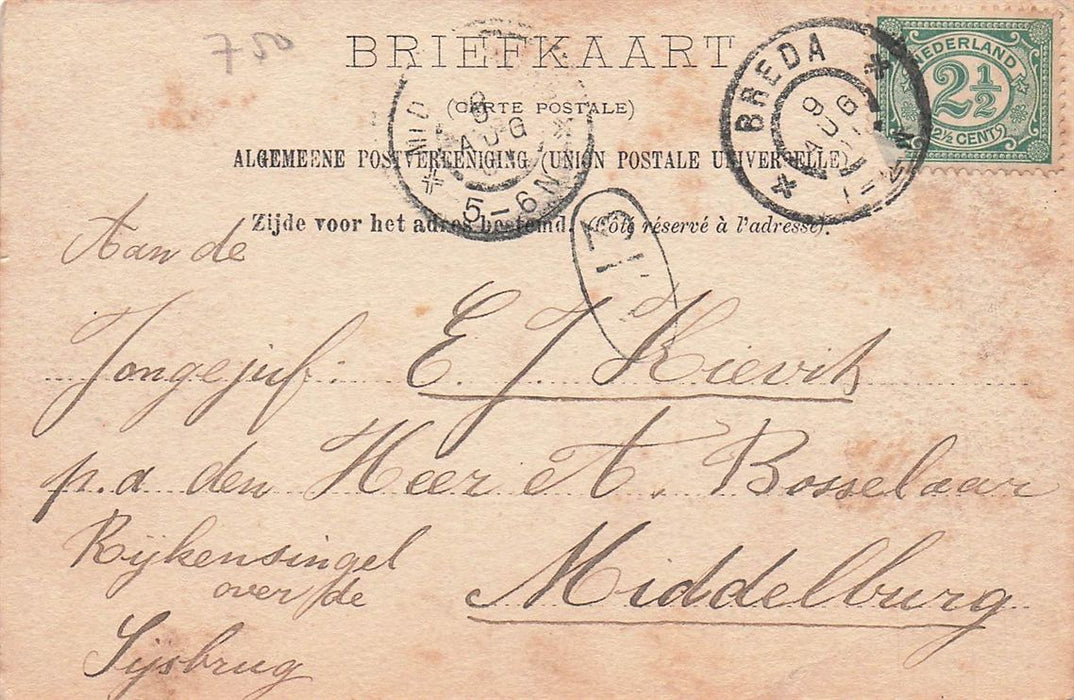 750
BRIEFKAART
(CARTE POSTALE)
ALGEMEENE POSTVEREENIGING (UNION POSTALE UNIVERSELLE)
Zijde voor het adres bestemd. (Côté réservé à l'adresse).
NEDERLAND
2½
2½ CENT
BREDA
9 AUG
MID
9 AUG
5-6N
Aan de
Jongejuf: E. J. Kievit
p.a den Heer A. Bosselaar
Rijkensingel
over de
Sijsbrug
Middelburg